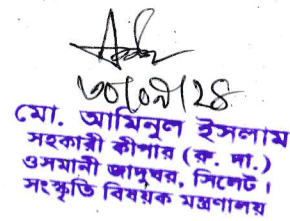 ৩০/০৯/২৪
মো. আমিনুল ইসলাম
সহকারী কীপার (রু. দা.)
ওসমানী জাদুঘর, সিলেট।
সংস্কৃতি বিষয়ক মন্ত্রণালয়